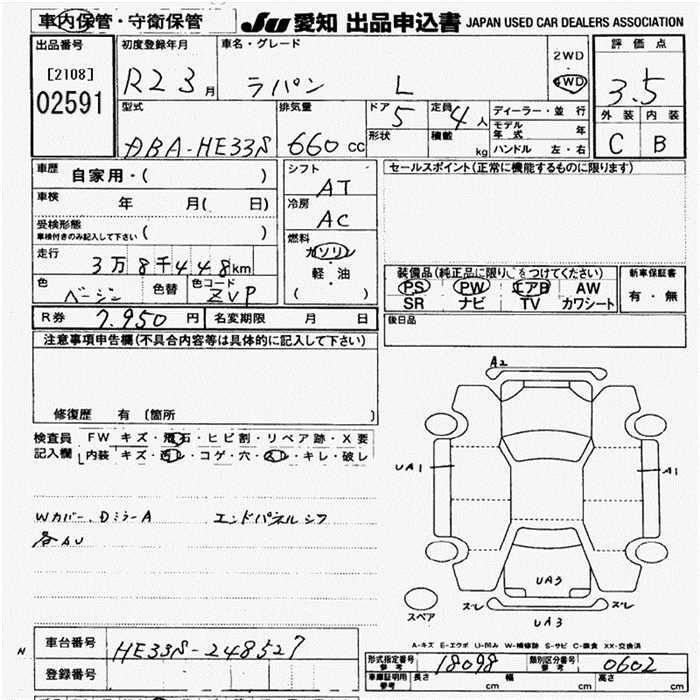 車内保管・守衛保管 JU 愛知 出品申込書 JAPAN USED CAR DEALERS ASSOCIATION
出品番号 初度登録年月 車名・グレード 2WD 評価点
[2108] R2 3月 ラパン L 4WD 3.5
02591 型式 排気量 ドア 5 定員 4人 ディーラー・並行 外装 内装
DBA-HE33S 660cc 形状 積載 kg モデル年式 年 C B
ハンドル 左・右
車歴 自家用・( ) シフト AT セールスポイント(正常に機能するものに限ります)
車検 年 月( 日) 冷房 AC
受検形態 車検付きのみ記入して下さい ( ) 燃料 ガソリン・軽・油 ( )
走行 3万8千448km
色 ベージュ 色替 色コード ZVP
装備品(純正品に限り○をつけてください) 新車保証書
PS PW エアB AW 有・無
SR ナビ TV カワシート
R券 7,950円 名変期限 月 日 後日品
注意事項申告欄(不具合内容等は具体的に記入して下さい)
修復歴 有 (箇所 )
検査員 FW キズ・飛石・ヒビ割・リペア跡・X要
記入欄 内装 キズ・汚レ・コゲ・穴・スレ・キレ・破レ
Wカバー、Dミラー A エンドパネルシワ
各AU
A2
UA1 A1
UA3
スペア スレ スレ
UA3
A-キズ E-エクボ U-凹み W-補修跡 S-サビ C-腐食 XX-交換済
車台番号 HE33S-248527
登録番号
形式指定番号 参考 18098 類別区分番号 参考 0602
車庫証明用 参考 長さ cm 幅 cm 高さ cm